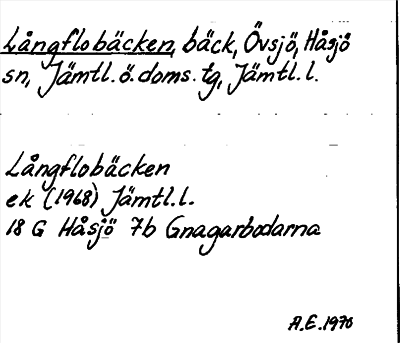 Långflobäcken, bäck, Övsjö, Håsjö
sn, Jämtl.ö.doms.tg, Jämtl.l.
Långflobäcken
ek (1968) Jämtl.l.
18 G Håsjö 7b Gnagarbodarna
A.E.1970